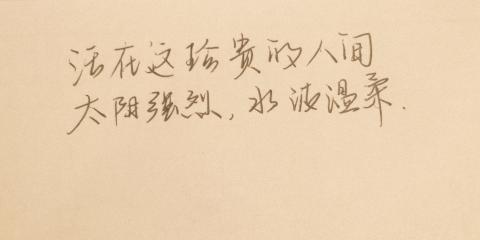 活在这珍贵的人间
太阳强烈，水波温柔.